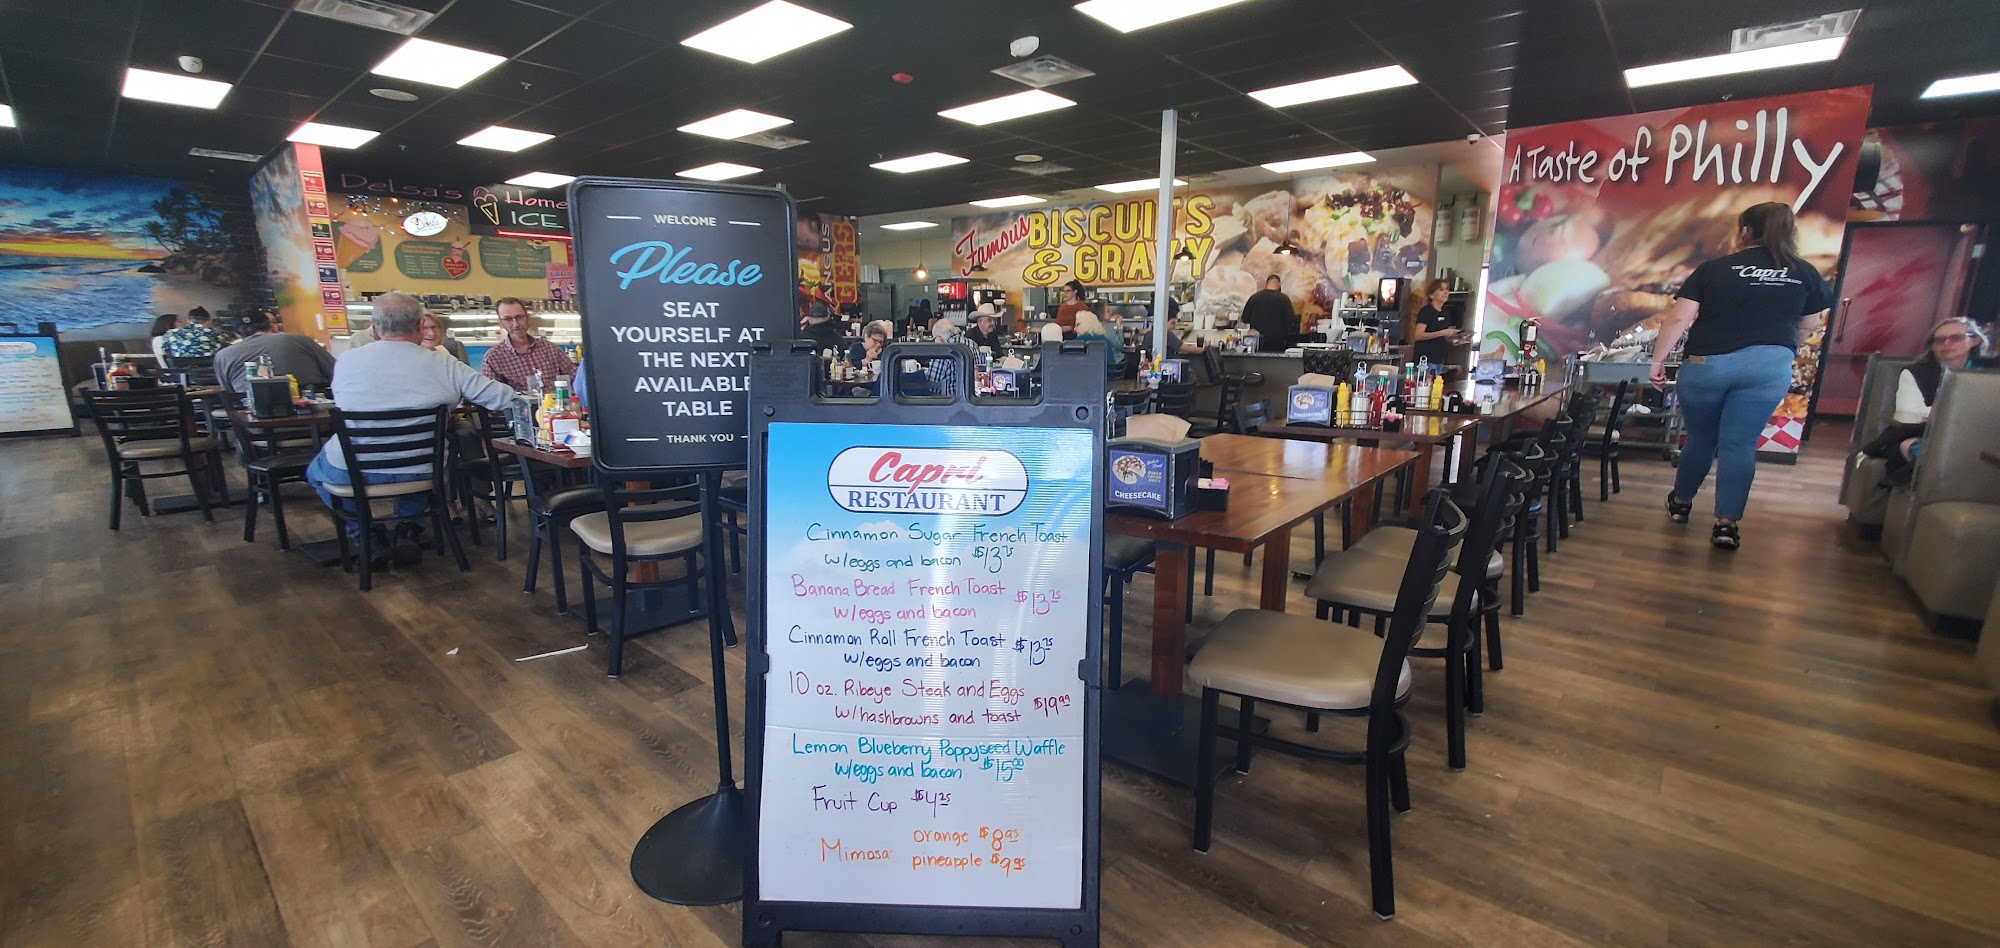 WELCOME
Please
SEAT
YOURSELF AT
THE NEXT
AVAILABLE
TABLE
THANK YOU
Capri
RESTAURANT
Cinnamon Sugar French Toast
w/eggs and bacon $13.75
Banana Bread French Toast $13.75
w/eggs and bacon
Cinnamon Roll French Toast $13.75
w/eggs and bacon
10 oz. Ribeye Steak and Eggs $19.99
w/hashbrowns and toast
Lemon Blueberry Poppyseed Waffle
w/eggs and bacon $15.00
Fruit Cup $4.25
Mimosa: orange $8.95
pineapple $9.95
DeLsa's Home
ICE
ANGUS
Famous BISCUITS
& GRAVY
A Taste of Philly
THE Capri
CHEESECAKE